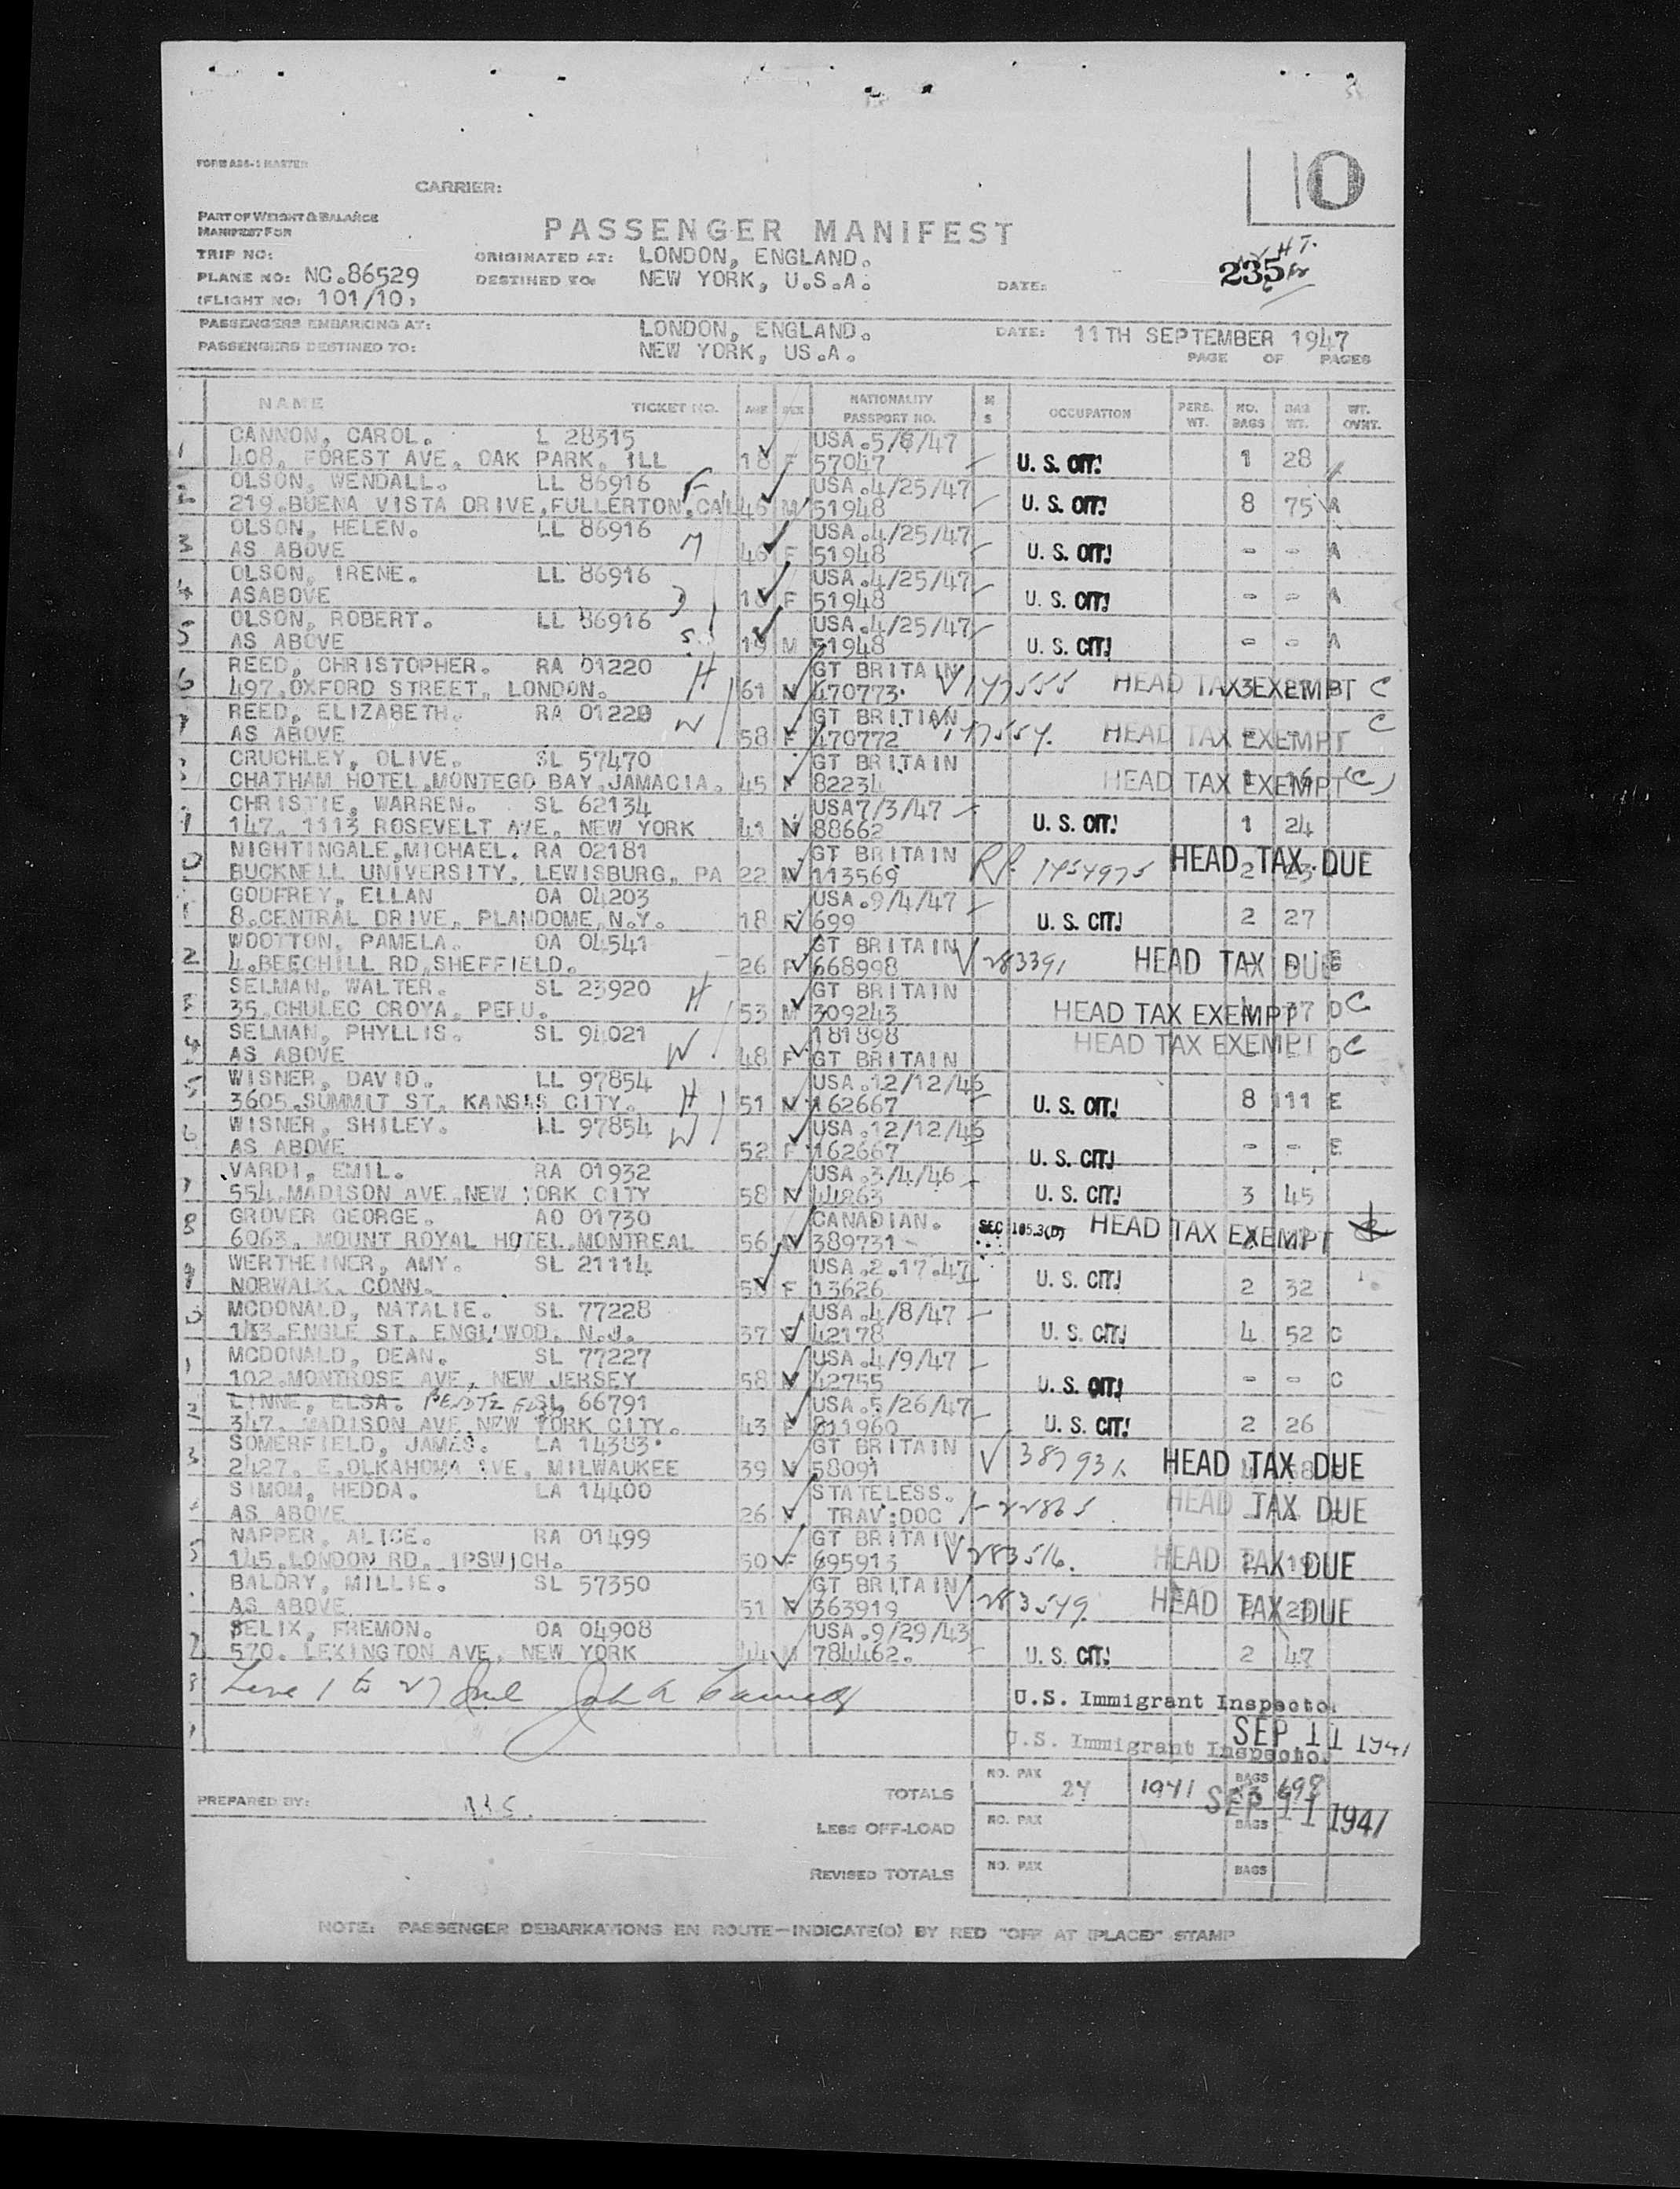 10
FORM A86-1 MASTER
CARRIER:
PART OF WEIGHT & BALANCE
MANIFEST FOR
PASSENGER MANIFEST
TRIP NO:
ORIGINATED AT: LONDON, ENGLAND.
PLANE NO: NC.86529
DESTINED TO: NEW YORK, U.S.A.
DATE:
235
(FLIGHT NO: 101/10,
PASSENGERS EMBARKING AT: LONDON, ENGLAND. DATE: 11TH SEPTEMBER 1947
PASSENGERS DESTINED TO: NEW YORK, US.A. PAGE OF PAGES
NAME TICKET NO. AGE SEX NATIONALITY PASSPORT NO. M S OCCUPATION PERS. WT. NO. BAGS BAG WT. WT. OVNT.
1 CANNON, CAROL. L 28315 USA.5/8/47
408, FOREST AVE, OAK PARK, ILL 18 F 57047 U. S. CIT! 1 28
OLSON, WENDALL. LL 86916 F USA.4/25/47
219.BUENA VISTA DRIVE,FULLERTON,CAL 46 M 51948 U. S. CIT! 8 75 A
3 OLSON, HELEN. LL 86916 USA.4/25/47
AS ABOVE M 46 F 51948 U. S. CIT! - - A
4 OLSON, IRENE. LL 86916 USA.4/25/47
ASABOVE D 18 F 51948 U. S. CIT! - - A
5 OLSON, ROBERT. LL 86916 USA.4/25/47
AS ABOVE S 19 M 51948 U. S. CIT! - - A
6 REED, CHRISTOPHER. RA 01220 H GT BRITAIN
497.OXFORD STREET, LONDON. 61 M 470773. V 147555 HEAD TAX EXEMPT C
REED, ELIZABETH. RA 01220 W GT BRITIAN
AS ABOVE 58 F 470772 V 147554. HEAD TAX EXEMPT C
CRUCHLEY, OLIVE. SL 57470 GT BRITAIN
CHATHAM HOTEL,MONTEGO BAY,JAMACIA. 45 F 82234 HEAD TAX EXEMPT (C)
CHRISTIE, WARREN. SL 62134 USA7/3/47
147. 1113 ROSEVELT AVE, NEW YORK 41 M 88662 U. S. CIT! 1 24
0 NIGHTINGALE,MICHAEL. RA 02181 GT BRITAIN
BUCKNELL UNIVERSITY, LEWISBURG, PA 22 M 113569 RP. 1454975 HEAD TAX DUE
1 GODFREY, ELLAN OA 04203 USA.9/4/47
8.CENTRAL DRIVE, PLANDOME,N.Y. 18 F 699 U. S. CIT! 2 27
2 WOOTTON, PAMELA. OA 04541 GT BRITAIN
4.BEECHILL RD,SHEFFIELD. 26 F 668998 V 283391 HEAD TAX DUE
SELMAN, WALTER. SL 23920 H GT BRITAIN
35.CHULEC OROYA, PERU. 53 M 309243 HEAD TAX EXEMPT 37 D C
4 SELMAN, PHYLLIS. SL 94021 181898
AS ABOVE W 48 F GT BRITAIN HEAD TAX EXEMPT D C
5 WISNER, DAVID. LL 97854 H USA.12/12/46
3605.SUMMIT ST, KANSAS CITY. 51 M 162667 U. S. CIT! 8 111 E
6 WISNER, SHILEY. LL 97854 W USA.12/12/46
AS ABOVE 52 F 162667 U. S. CIT! - - E
7 VARDI, EMIL. RA 01932 USA.3/4/46
554.MADISON AVE,NEW YORK CITY 58 M 44863 U. S. CIT! 3 45
8 GROVER GEORGE. AO 01730 CANADIAN.
6063, MOUNT ROYAL HOTEL,MONTREAL 56 M 389731 SEC 105.3(D) HEAD TAX EXEMPT
9 WERTHEINER, AMY. SL 21114 USA.2.17.47
NORWALK, CONN. 50 F 13626 U. S. CIT! 2 32
0 MCDONALD, NATALIE. SL 77228 USA.4/8/47
ENGLE ST, N.J. 37 F 42178 U. S. CIT! 4 52 C
1 MCDONALD, DEAN. SL 77227 USA.4/9/47
102.MONTROSE AVE, NEW JERSEY 58 M 42755 U. S. CIT! - - C
LINNE, ELSA. SL 66791 USA.5/26/47
347. MADISON AVE,NEW YORK CITY. 43 F 811960 U. S. CIT! 2 26
3 SOMERFIELD, JAMES. LA 14383. GT BRITAIN
2427. E.OLKAHOMA AVE, MILWAUKEE 39 M 58091 V 387931. HEAD TAX DUE
SIMOM, HEDDA. LA 14400 STATELESS.
AS ABOVE 26 F TRAV:DOC HEAD TAX DUE
5 NAPPER, ALICE. RA 01499 GT BRITAIN
145.LONDON RD, IPSWICH. 50 F 695913 V 283516. HEAD TAX DUE
BALDRY, MILLIE. SL 57350 GT BRITAIN
AS ABOVE 51 F 363919 V 283549. HEAD TAX DUE
SELIX, FREMON. OA 04908 USA.9/29/43
570. LEXINGTON AVE, NEW YORK 44 M 784462. U. S. CIT! 2 47
Line 1 to 27 Incl John
U.S. Immigrant Inspector
SEP 11 1947
U.S. Immigrant Inspector
TOTALS NO. PAX 27 BAGS 698
SEP 11 1947
PREPARED BY:
LESS OFF-LOAD NO. PAX BAGS
REVISED TOTALS NO. PAX BAGS
NOTE: PASSENGER DEBARKATIONS EN ROUTE—INDICATE(D) BY RED "OFF AT (PLACE)" STAMP